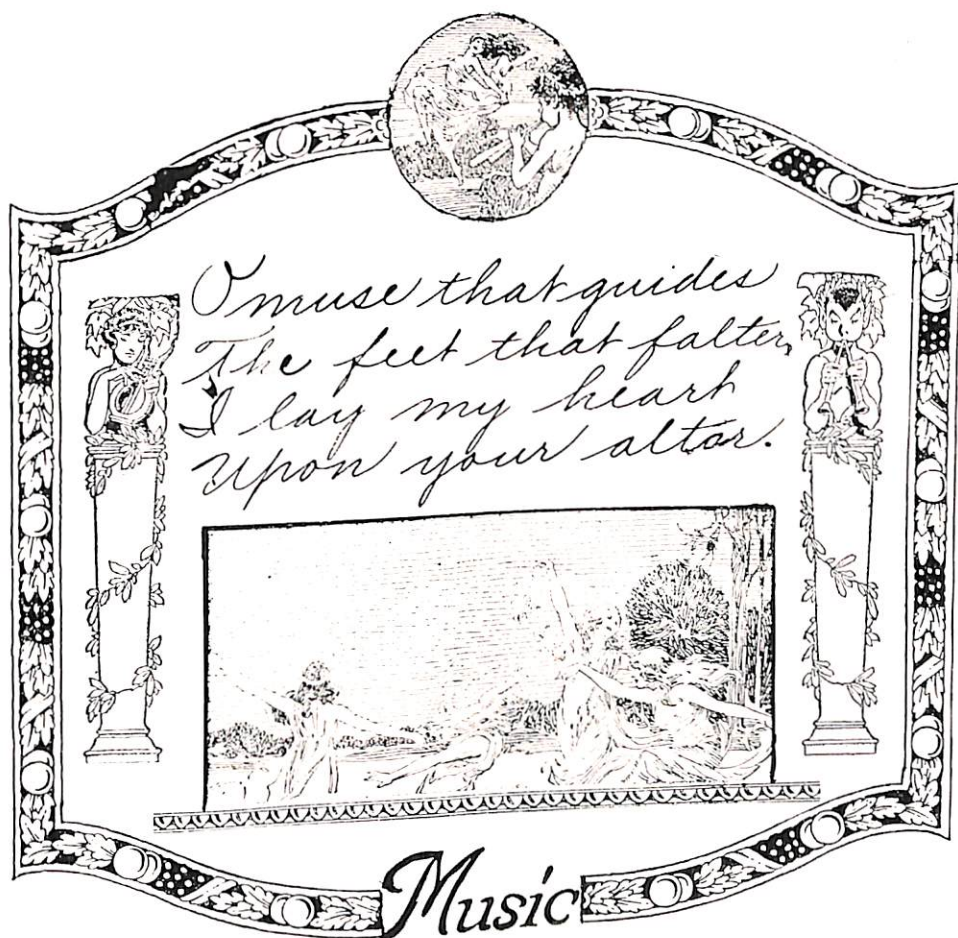 O muse that guides
The feet that falter,
I lay my heart
Upon your altar.
Music